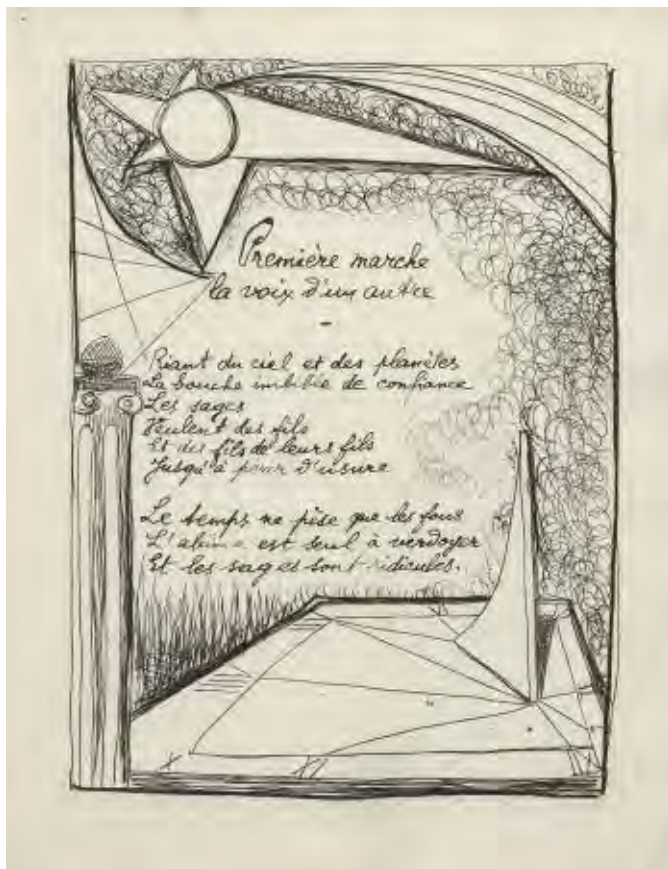 Première marche
la voix d'un autre
-
Riant du ciel et des planètes
La bouche imbibée de confiance
Les sages
Veulent des fils
Et des fils de leurs fils
Jusqu'à périr d'usure
Le temps ne pèse que les fous
L'abîme est seul à verdoyer
Et les sages sont ridicules.